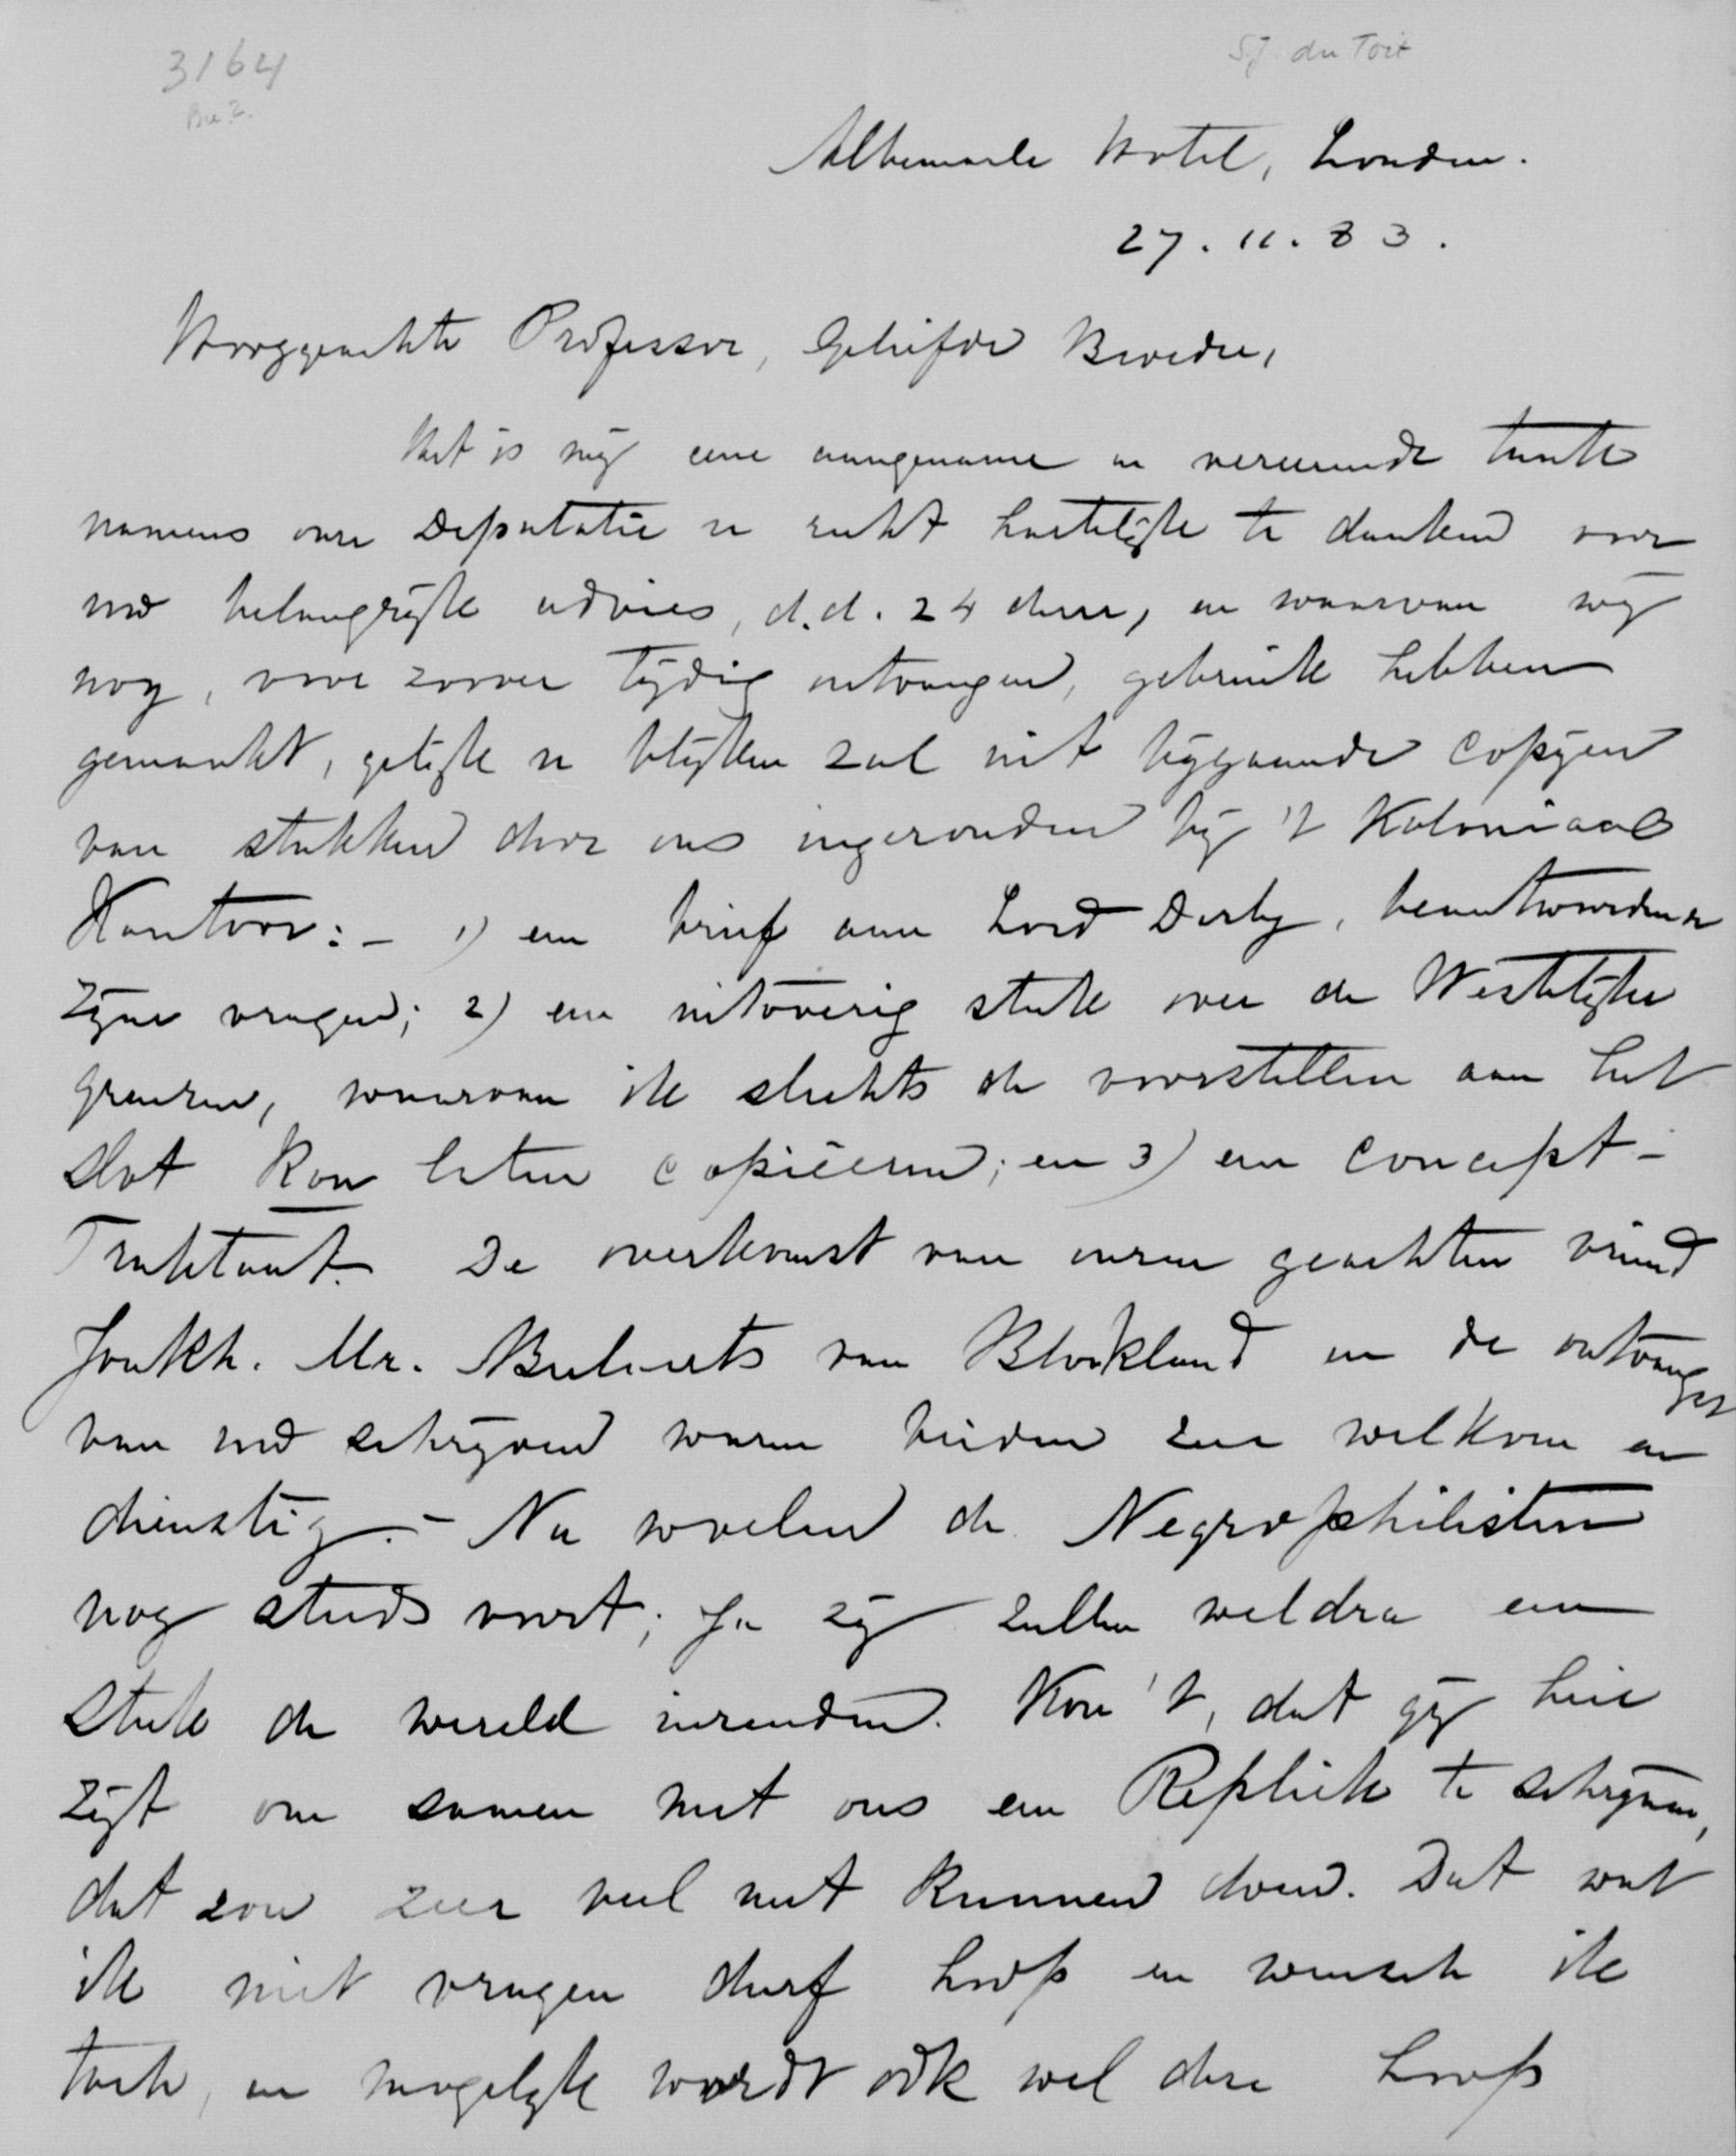 3164
S.J. du Toit
Albemarle Hotel, Londen.
27.11.83.
Hooggeachte Professor, Geliefde Broeder,
Het is mij eene aangename en vereerende taak
namens onze Deputatie u recht hartelijk te danken voor
uw belangrijk advies, d.d. 24 dezer, en waarvan wij
nog, voor zoover tijdig ontvangen, gebruik hebben
gemaakt, gelijk u blijken zal uit bijgaande copijen
van stukken door ons ingezonden bij 't Koloniaal
Kantoor: – 1) een brief aan Lord Derby, beantwoordende
zijne vragen; 2) een uitvoerig stuk over de Westelijke
grenzen, waarvan ik slechts de voorstellen aan het
slot kon laten copieëren; en 3) een concept-
Traktaat. De overkomst van onzen geachten vriend
Jonkh. Mr. Beelaerts van Blokland en de ontvangst
van uw schrijven waren beiden zeer welkom en
dienstig. – Nu woelen de Negrophilisten
nog steeds voort; Ja zij zullen weldra een
stuk de wereld inzenden. Kon 't, dat gij hier
zijt om samen met ons een Repliek te schrijven,
dat zou zeer veel nut kunnen doen. Dat wat
ik niet vragen durf hoop en wensch ik
toch, en mogelijk wordt ook wel deze hoop